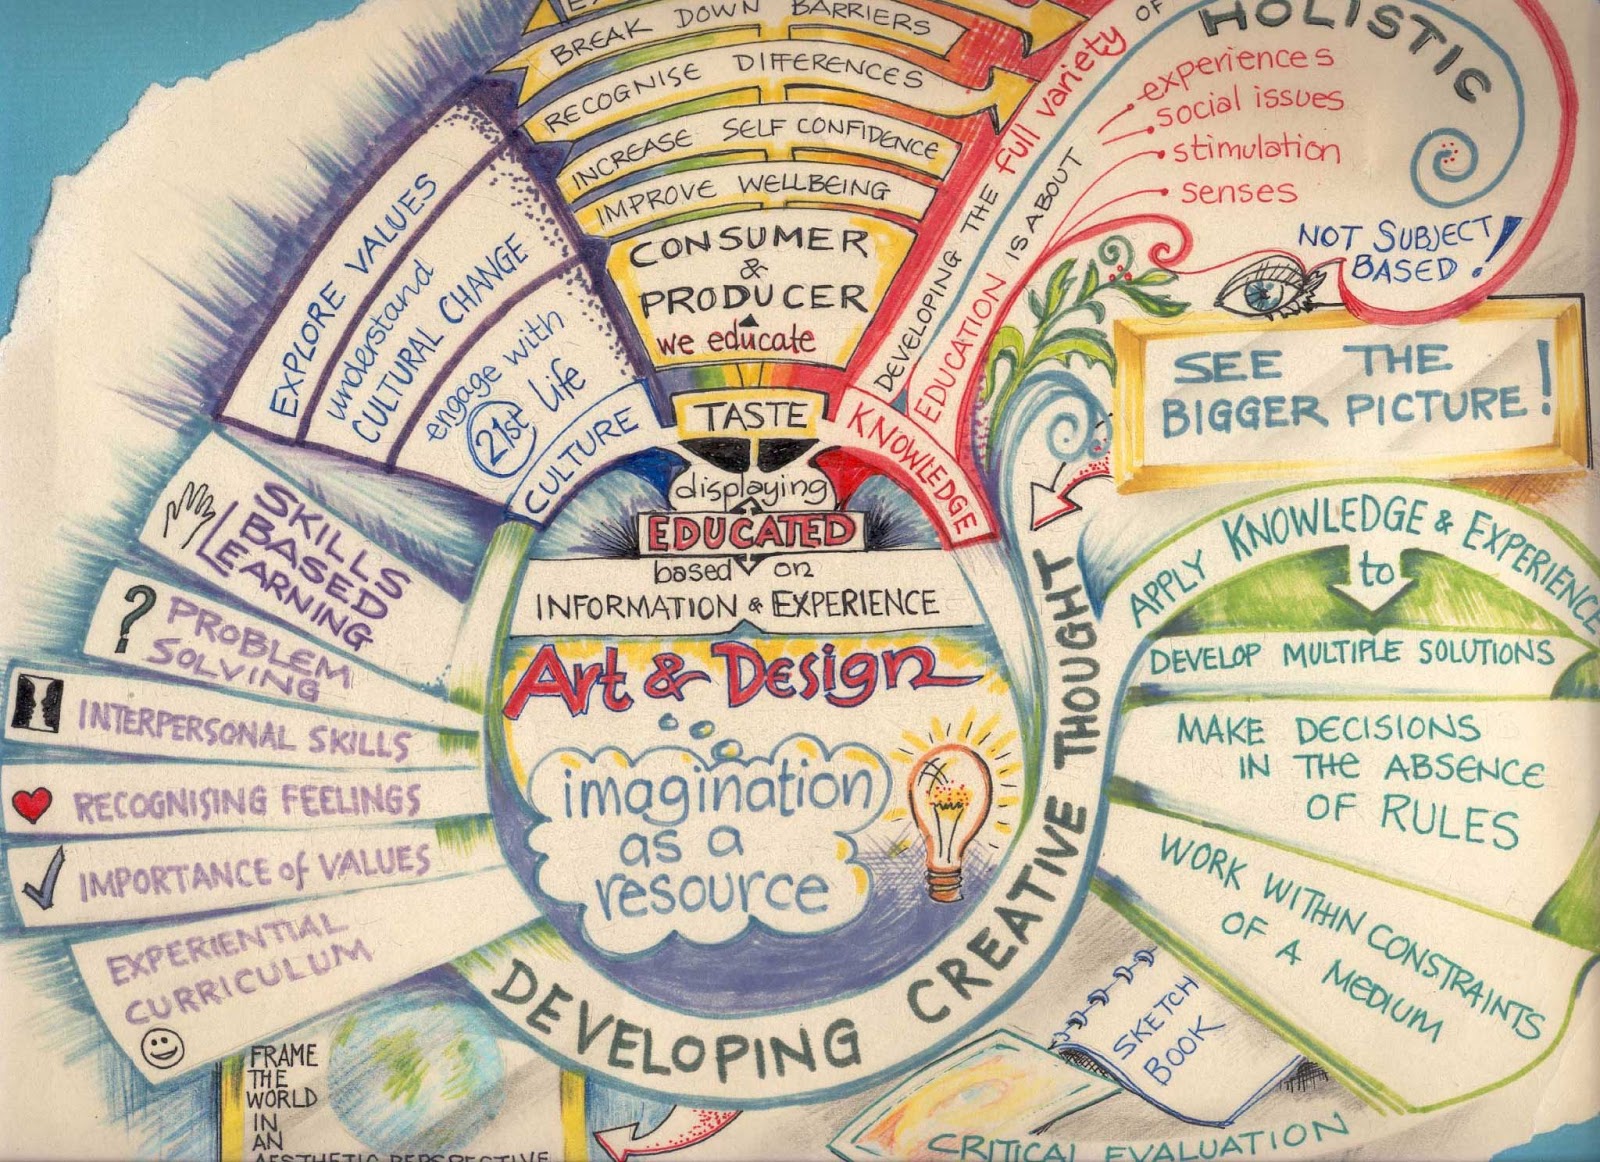 BREAK DOWN BARRIERS
RECOGNISE DIFFERENCES
INCREASE SELF CONFIDENCE
IMPROVE WELLBEING
CONSUMER
&
PRODUCER
we educate
TASTE
displaying
EDUCATED
based on
INFORMATION & EXPERIENCE
Art & Design
imagination
as a
resource
EXPLORE VALUES
understand
CULTURAL CHANGE
engage with
21st Life
CULTURE
KNOWLEDGE
DEVELOPING THE full variety OF
EDUCATION IS ABOUT
HOLISTIC
experiences
social issues
stimulation
senses
NOT SUBJECT
BASED!
SEE THE
BIGGER PICTURE!
SKILLS
BASED
LEARNING
?
PROBLEM
SOLVING
INTERPERSONAL SKILLS
RECOGNISING FEELINGS
IMPORTANCE of VALUES
EXPERIENTIAL
CURRICULUM
DEVELOPING CREATIVE THOUGHT
APPLY KNOWLEDGE & EXPERIENCE
to
DEVELOP MULTIPLE SOLUTIONS
MAKE DECISIONS
IN THE ABSENCE
OF RULES
WORK WITHIN CONSTRAINTS
OF A MEDIUM
SKETCH
BOOK
CRITICAL EVALUATION
FRAME
THE
WORLD
IN
AN
AESTHETIC PERSPECTIVE